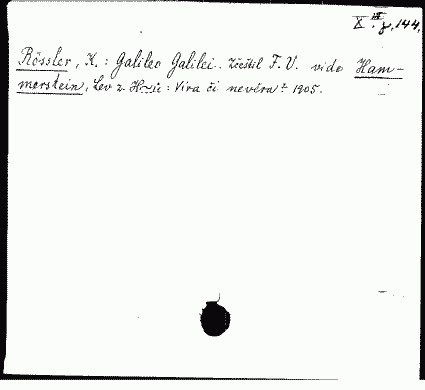 X. III. g, 144.
Rössler, K.: Galileo Galilei. Zčeštil F. V. vide Ham-
merstein, Lev z. : Víra či nevěra? 1905.